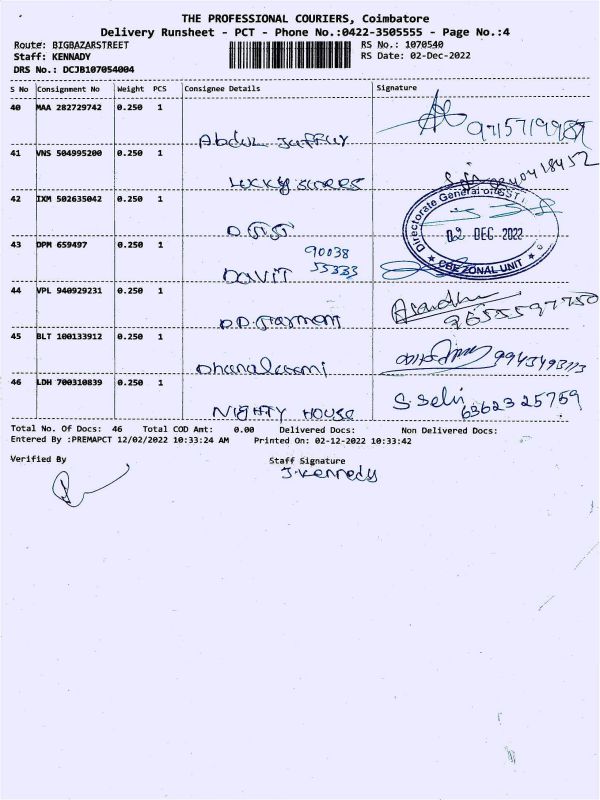 THE PROFESSIONAL COURIERS, Coimbatore
Delivery Runsheet - PCT - Phone No.:0422-3505555 - Page No.:4
Route: BIGBAZARSTREET RS No.: 1070540
Staff: KENNADY RS Date: 02-Dec-2022
DRS No.: DCJB107054004
S No Consignment No Weight PCS Consignee Details Signature
40 MAA 282729742 0.250 1
Abdul Jaffur 9715719987
41 VNS 504995200 0.250 1
42 IXM 502635042 0.250 1
Directorate General of GST I
02 DEC 2022
CBE ZONAL UNIT
43 DPM 659497 0.250 1
DAVIT 90038 55333
44 VPL 940929231 0.250 1
45 BLT 100133912 0.250 1
Dhanalaxmi 9943493113
46 LDH 700310839 0.250 1
NIGHTY HOUSE S. Selvi 6362325759
Total No. Of Docs: 46 Total COD Amt: 0.00 Delivered Docs: Non Delivered Docs:
Entered By :PREMAPCT 12/02/2022 10:33:24 AM Printed On: 02-12-2022 10:33:42
Verified By Staff Signature
J. Kennedy